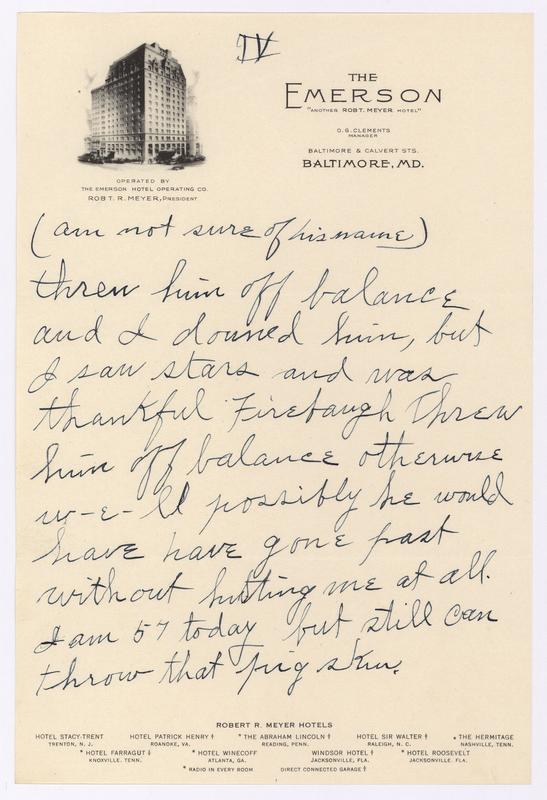 IV
THE
EMERSON
"ANOTHER ROBT. MEYER HOTEL"
O.G. CLEMENTS
MANAGER
BALTIMORE & CALVERT STS.
BALTIMORE, MD.
OPERATED BY
THE EMERSON HOTEL OPERATING CO.
ROBT. R. MEYER, PRESIDENT
(am not sure of his name)
threw him off balance
and I downed him, but
I saw stars and was
thankful Firebaugh threw
him off balance otherwise
w-e-ll possibly he would
have have gone past
without hitting me at all.
I am 57 today but still can
throw that pig skin.
ROBERT R. MEYER HOTELS
HOTEL STACY-TRENT HOTEL PATRICK HENRY ‡ * THE ABRAHAM LINCOLN ‡ HOTEL SIR WALTER ‡ * THE HERMITAGE
TRENTON, N. J. ROANOKE, VA. READING, PENN. RALEIGH, N. C. NASHVILLE, TENN.
* HOTEL FARRAGUT ‡ * HOTEL WINECOFF WINDSOR HOTEL ‡ * HOTEL ROOSEVELT
KNOXVILLE, TENN. ATLANTA, GA. JACKSONVILLE, FLA. JACKSONVILLE, FLA.
* RADIO IN EVERY ROOM DIRECT CONNECTED GARAGE ‡